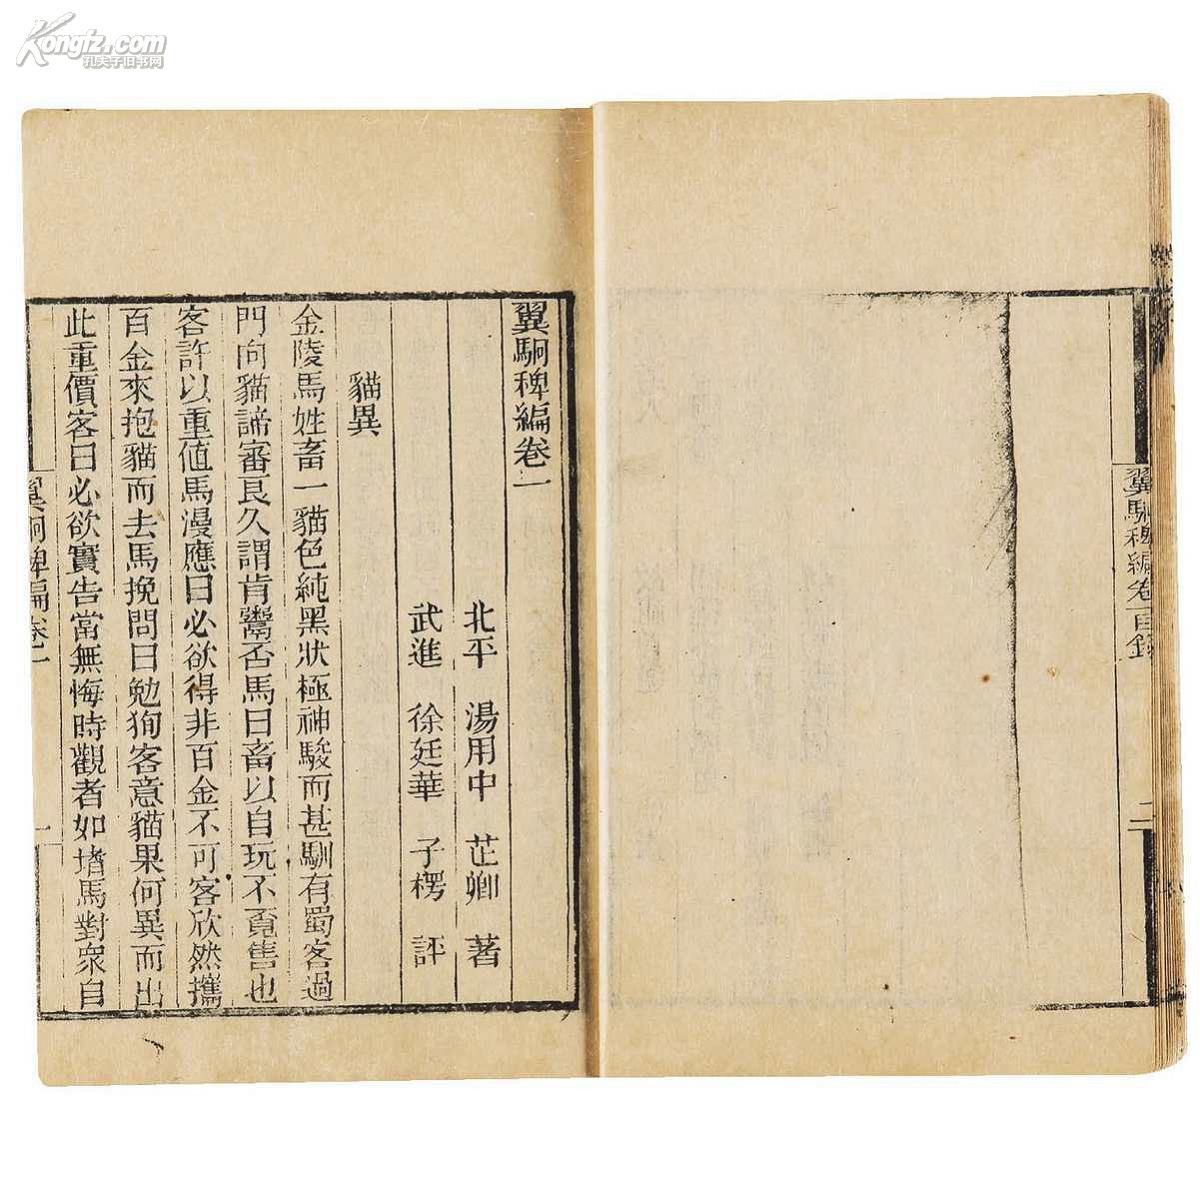 Kongfz.com
孔夫子旧书网
翼駉稗編卷一目錄
二
翼駉稗編卷一
北平 湯用中 芷卿 著
武進 徐廷華 子楞 評
貓異
金陵馬姓畜一貓色純黑狀極神駿而甚馴有蜀客過
門向貓諦審良久謂肯鬻否馬曰畜以自玩不覔售也
客許以重值馬漫應曰必欲得非百金不可客欣然攜
百金來抱貓而去馬挽問曰勉狥客意貓果何異而出
此重價客曰必欲實告當無悔時觀者如堵馬對衆自
翼駉稗編卷一
一